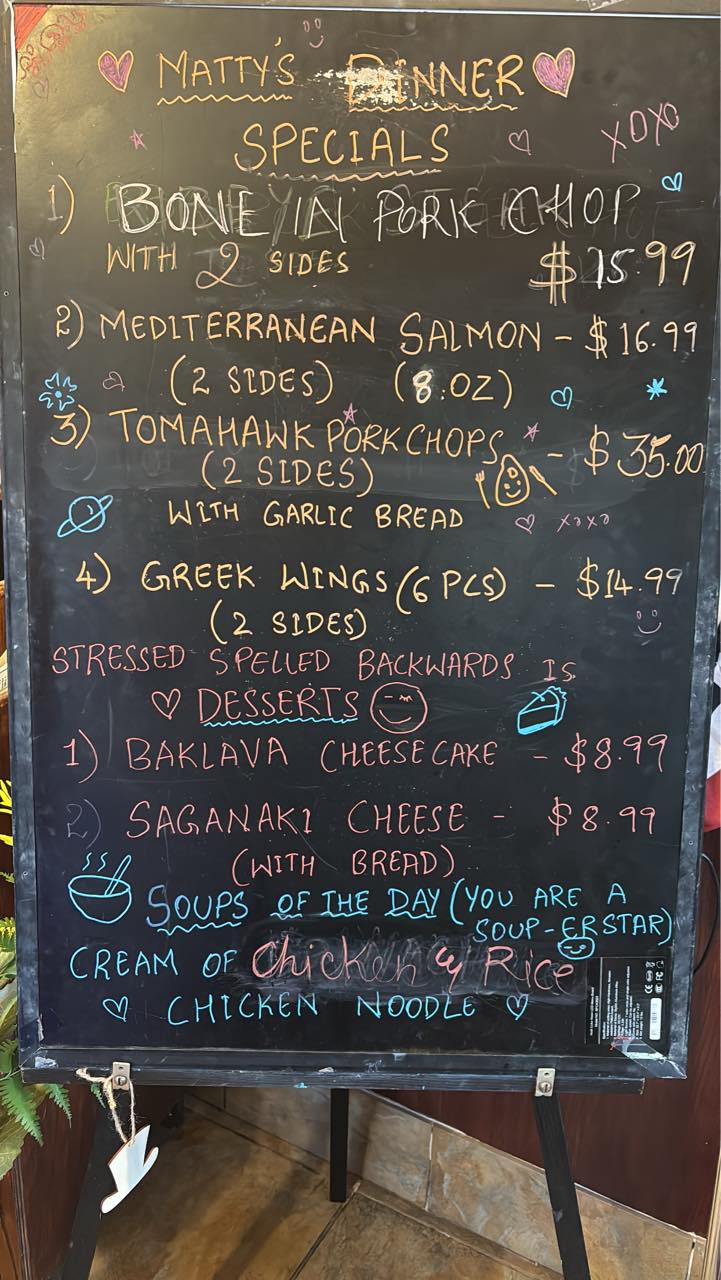 MATTY'S DINNER
SPECIALS
XOXO
1) BONE IN PORK CHOP
WITH 2 SIDES $15.99
2) MEDITERRANEAN SALMON - $16.99
(2 SIDES) (8.OZ)
3) TOMAHAWK PORK CHOPS - $35.00
(2 SIDES)
WITH GARLIC BREAD
xoxo
4) GREEK WINGS (6 PCS) - $14.99
(2 SIDES)
STRESSED SPELLED BACKWARDS IS
DESSERTS
1) BAKLAVA CHEESECAKE - $8.99
2) SAGANAKI CHEESE - $8.99
(WITH BREAD)
SOUPS OF THE DAY (YOU ARE A
SOUP-ER STAR)
CREAM OF Chicken & Rice
CHICKEN NOODLE